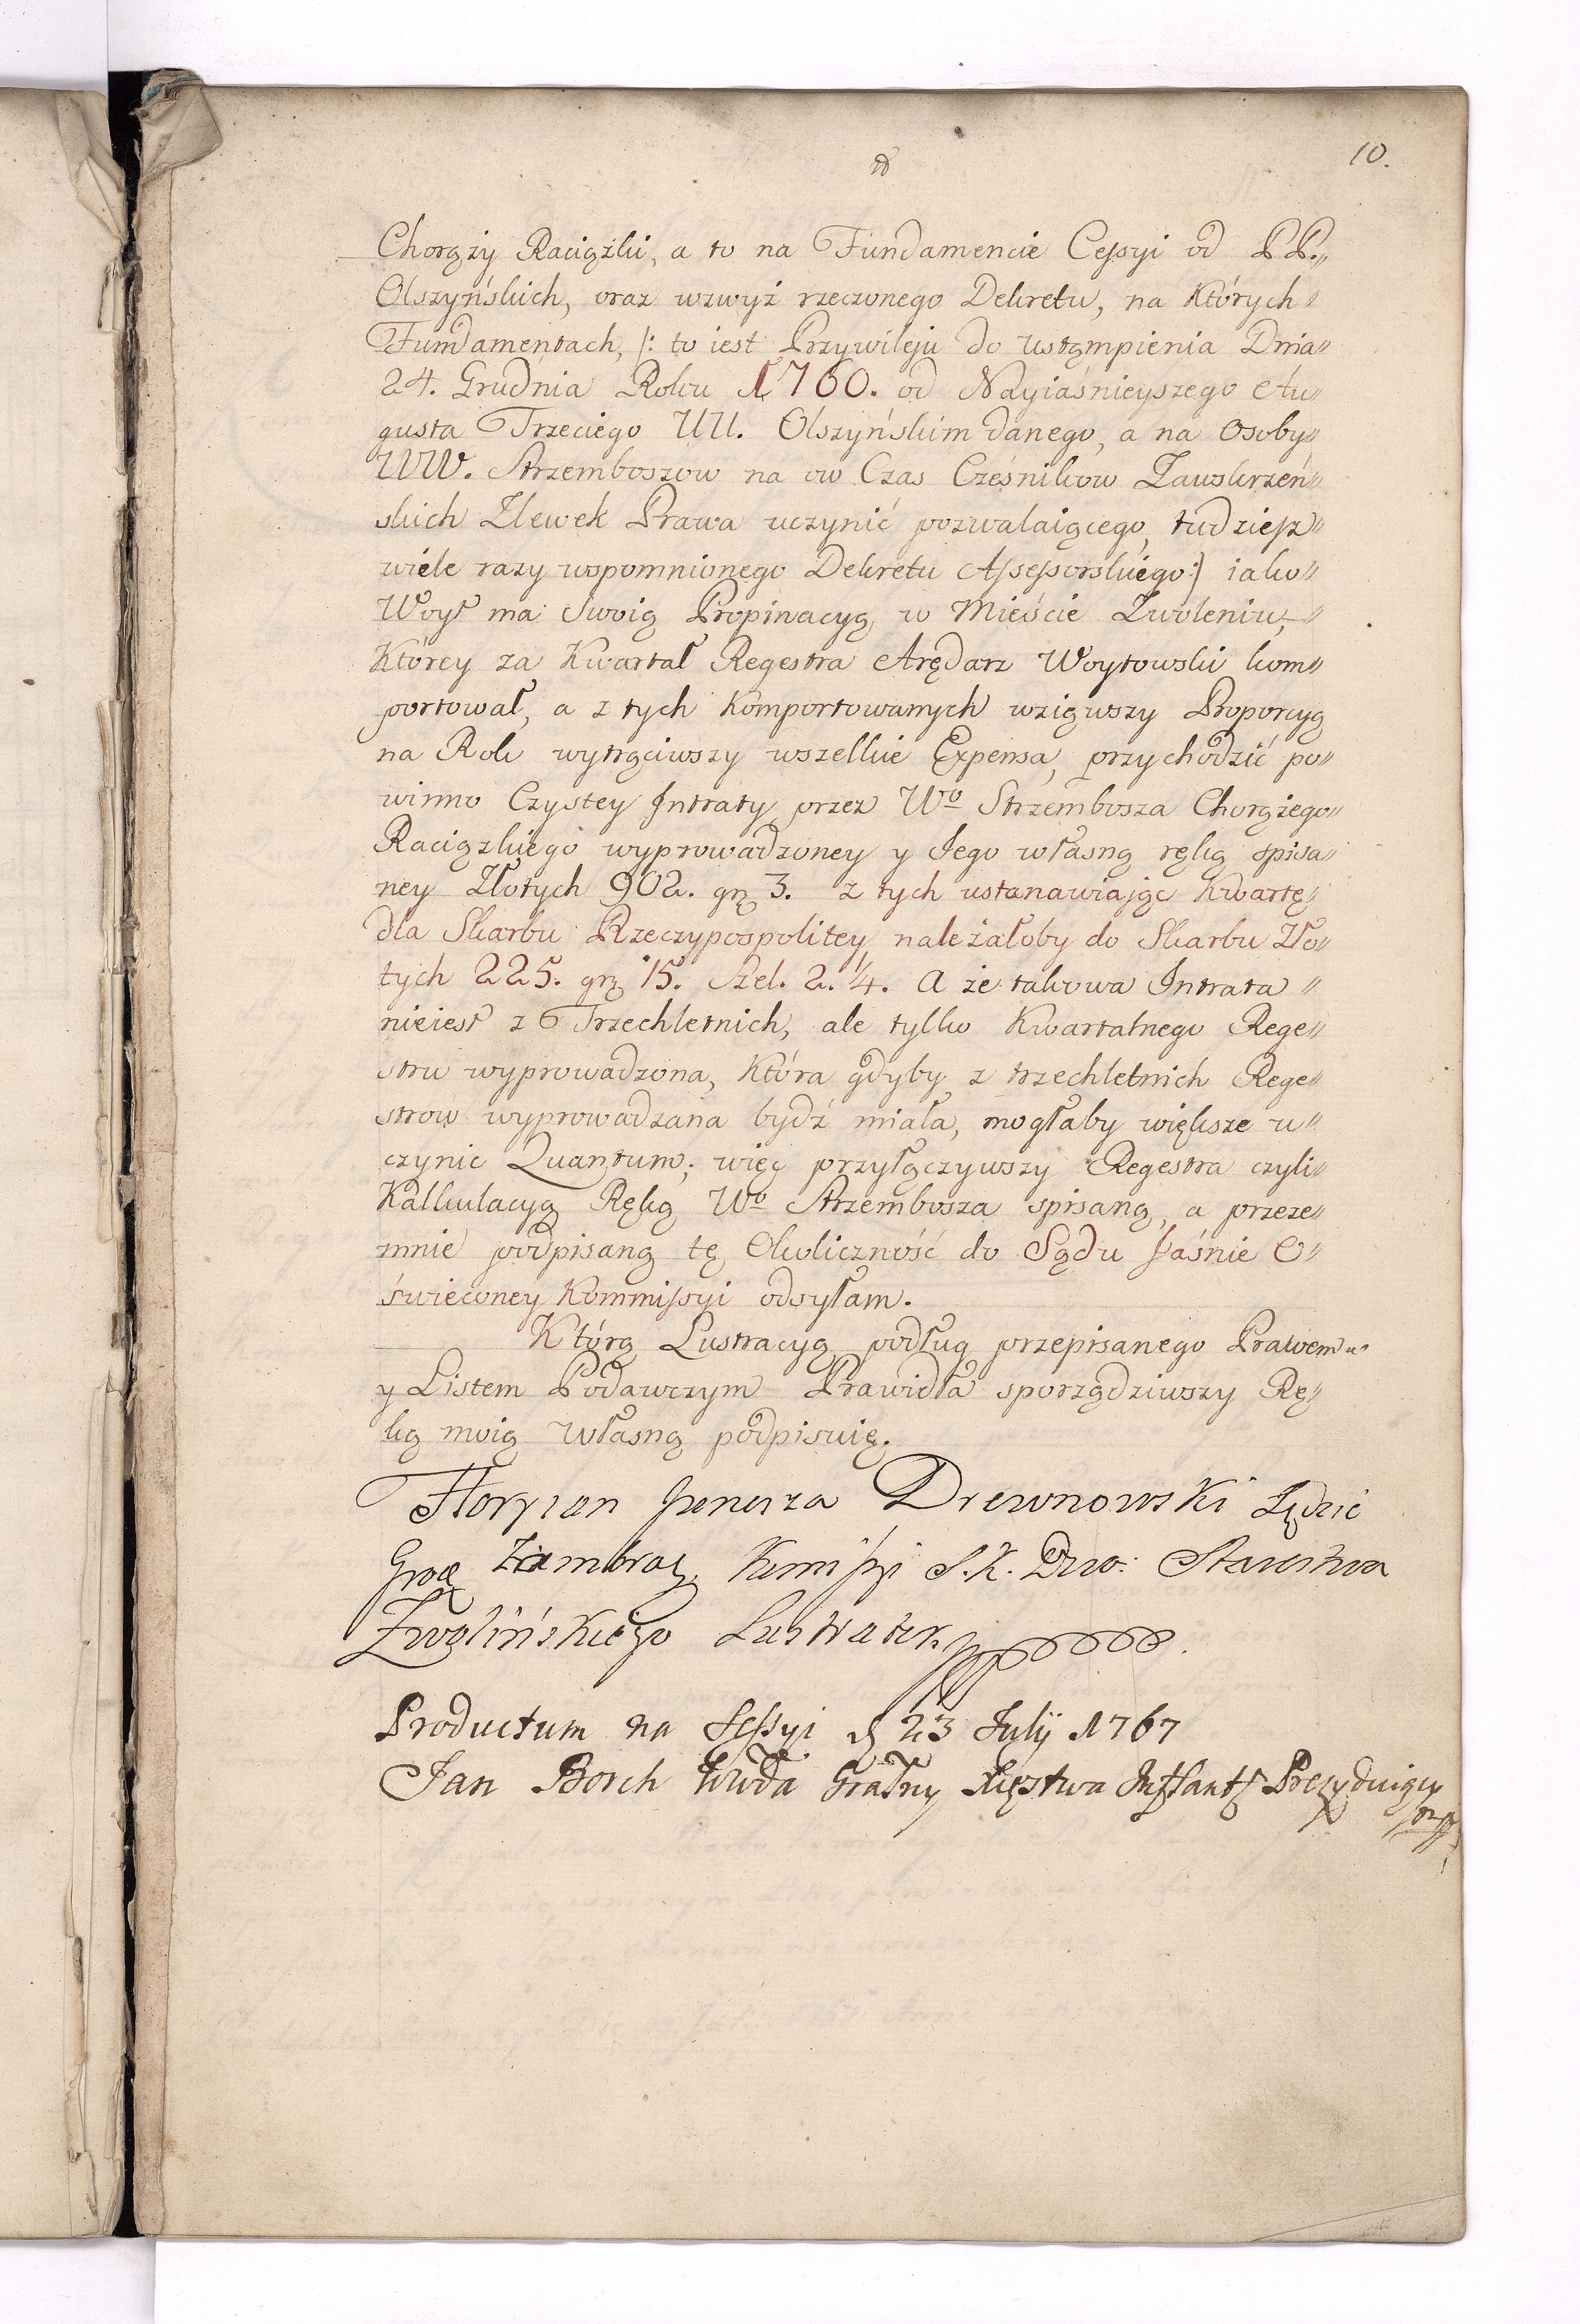 10.
Chorąży Raciązki, a to na Fundamencie Cessyi od PP.„
Olszyńskich, oraz wzwyż rzeczonego Dekretu, na Których„
Fundamentach, /: to iest Przywileju do ustąmpienia Dnia„
24. Grudnia Roku 1760. od Nayiaśnieyszego Au„
gusta Trzeciego UU. Olszyńskim danego, a na Osoby„
WW. Strzemboszow na ow Czas Cześnikow Zawskrzeń„
skich Zlewek Prawa uczynić pozwalaiącego, tudziesz„
wiele razy wspomnionego Dekretu Assessorskiego:/ iako„
Woyt ma Swoią Propinacyą w Mieście Zwoleniu,„
Którey za Kwartał Regestra Arędarz Woytowski kom„
portował, a z tych Komportowanych wziąwszy Proporcyą
na Rok wytrąciwszy wszelkie Expensa, przychodzić po„
winno Czystey Intraty przez Wo Strzembosza Chorążego„
Raciązkiego wyprowadzoney y Jego własną ręką spisa„
ney Złotych 902. gr 3. z tych ustanawiając Kwartę„
dla Skarbu Rzeczypospolitey należałoby do Skarbu Zło„
tych 225. gr 15. Szel. 2. 1/4. A że takowa Intrata„
nieiest z Trzechletnich, ale tylko Kwartalnego Rege„
stru wyprowadzona, Która gdyby z trzechletnich Rege„
strow wyprowadzana bydź miała, mogłaby większe u„
czynic Quantum; więc przyłączywszy Regestra czyli„
Kalkulacyą Ręką Wo Strzembosza spisaną, a przeze„
mnie podpisaną tę Okoliczność do Sądu Jaśnie O„
świeconey Kommissyi odsyłam.
Którą Lustracyą podług przepisanego Prawem„
y Listem Podawczym Prawidła sporządziwszy Rę„
ką moią własną podpisuię.
Floryan Drewnowski Sędzic
Kommissyi S. K. Starostwa
Zwolińskiego Lustrator
Productum na Sessyi d 23 July 1767
Jan Borch Wwda Grałny Xięstwa Inflant Prezyduiący